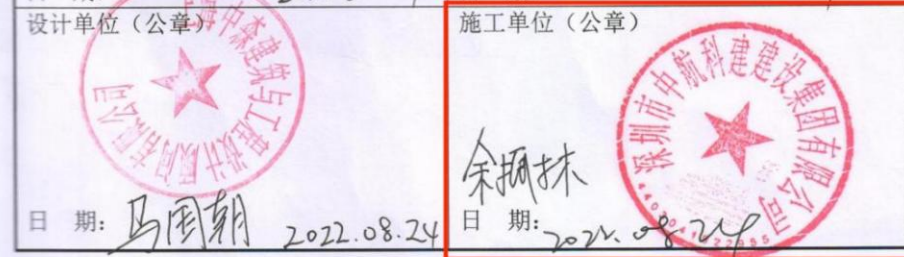 设计单位（公章）
中森建筑与工程设计顾问有限公司
日 期：
2022.08.24
施工单位（公章）
深圳市中航科建建设集团有限公司
日 期：
2022.08.24